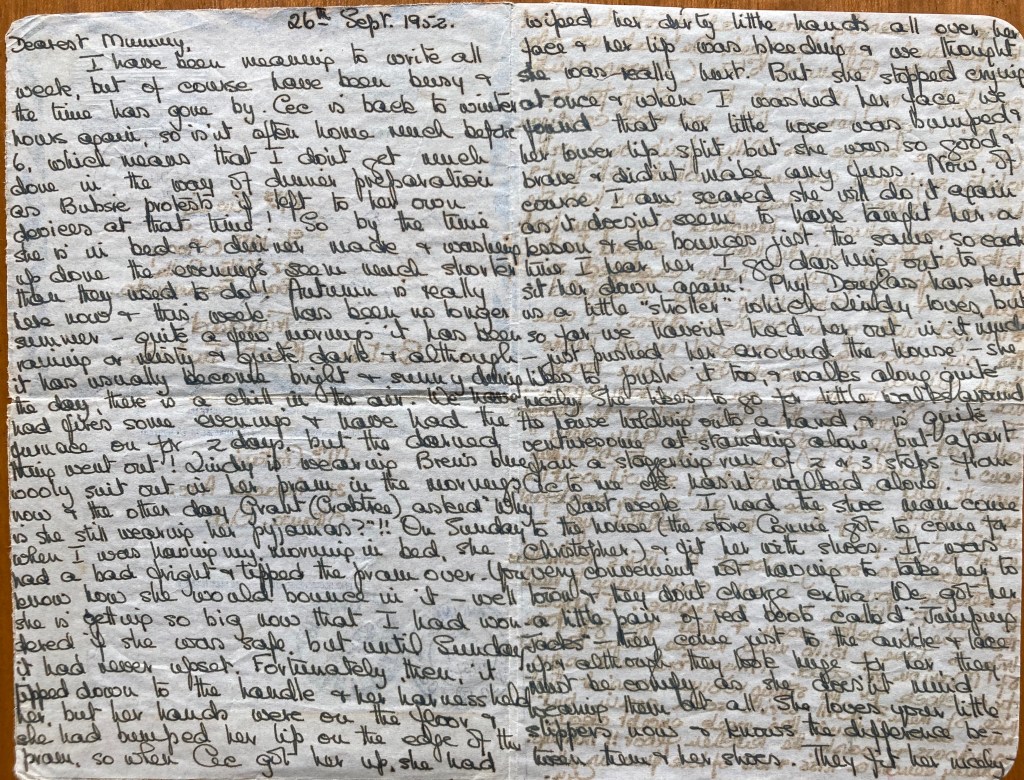 26th Sept. 1952.
Dearest Mummy,
I have been meaning to write all
week, but of course have been busy &
the time has gone by. Cec is back to winter
hours again, so isn't often home much before
6, which means that I don't get much
done in the way of dinner preparation
as Bubsie protests if left to her own
devices at that time! So by the time
she is in bed & dinner made & washing
up done the evenings seem much shorter
than they used to do! Autumn is really
here now & this week has been no longer
summer - quite a few mornings it has been
raining or misty & quite dark & although
it has usually become bright & sunny during
the day, there is a chill in the air. We have
had fires some evenings & have had the
furnace on for 2 days but the darned
thing went out! Lindy is wearing Bren's blue
wooly suit out in her pram in the mornings
now & the other day Grant (Crabtree) asked "Why
is she still wearing her pyjamas?"!! On Sunday
when I was having my morning in bed, she
had a bad fright & tipped the pram over. (You
know how she would bounce in it - well
she is getting so big now that I had won-
dered if she was safe, but until Sunday
it had never upset. Fortunately then, it
tipped down to the handle & her harness held
her, but her hands were on the floor &
she had bumped her lip on the edge of the
pram, so when Cec got her up, she had
wiped her dirty little hands all over her
face & her lip was bleeding & we thought
she was really hurt. But she stopped crying
at once & when I washed her face we
found that her little nose was bumped &
her lower lip split but she was so good &
brave & didn't make any fuss. Now, of
course I am scared she will do it again
as it doesn't seem to have taught her a
lesson & she bounces just the same, so each
time I hear her I go dashing out to
sit her down again! Phyl Douglas has lent
us a little "stroller" which Lindy loves, but
so far we haven't had her out in it much
- just pushed her around the house - she
likes to push it too, & walks along quite
nicely. She likes to go for little walks around
the house holding onto a hand, & is quite
venturesome at standing alone but apart
than a staggering run of 2 or 3 steps from
Cec to me she hasn't walked alone.
Last week I had the shoe man come
to the house (the store Connie got to come for
Christopher) & fit her with shoes. It was
very convenient not having to take her to
town & they don't charge extra. We got her
a little pair of red boots called "Jumping
Jacks" - they come just to the ankle & lace
up & although they look huge for her they
must be comfy as she doesn't mind
wearing them at all. She loves your little
slippers now & knows the difference be-
tween them & her shoes. They fit her nicely